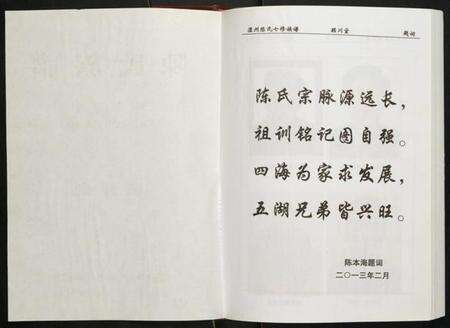 陈氏七修族谱 题词
陈氏宗脉源远长，
祖训铭记图自强。
四海为家求发展，
五湖兄弟皆兴旺。
陈本海题词
二〇一三年二月